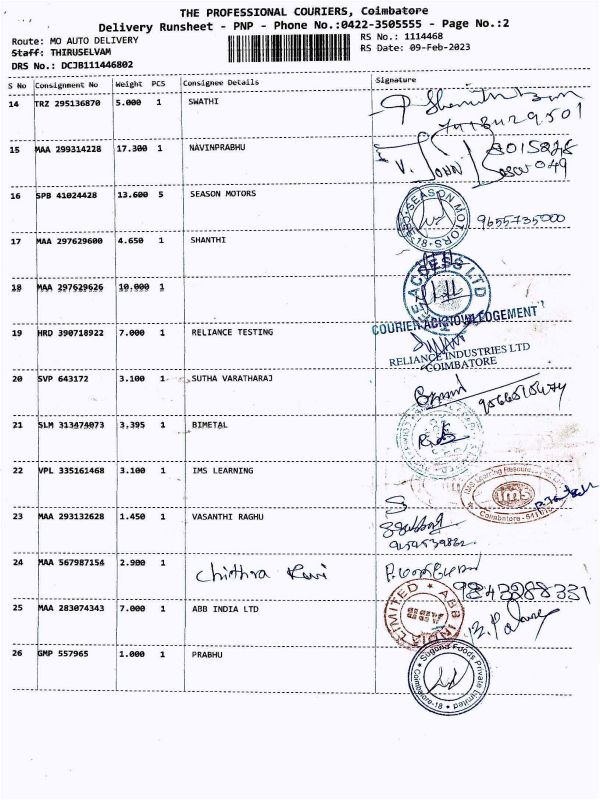 THE PROFESSIONAL COURIERS, Coimbatore
Delivery Runsheet - PNP - Phone No.:0422-3505555 - Page No.:2
Route: MO AUTO DELIVERY
RS No.: 1114468
Staff: THIRUSELVAM
RS Date: 09-Feb-2023
DRS No.: DCJB111446802
S No Consignment No Weight PCS Consignee Details Signature
14 TRZ 295136870 5.000 1 SWATHI
15 MAA 299314228 17.300 1 NAVINPRABHU
V. JOHN
16 SPB 41024428 13.600 5 SEASON MOTORS
SEASON MOTORS
9655735000
17 MAA 297629600 4.650 1 SHANTHI
18 MAA 297629626 10.000 1
COURIER ACKNOWLEDGEMENT
19 HRD 390718922 7.000 1 RELIANCE TESTING
RELIANCE INDUSTRIES LTD
COIMBATORE
20 SVP 643172 3.100 1 SUTHA VARATHARAJ
21 SLM 313474073 3.395 1 BIMETAL
22 VPL 335161468 3.100 1 IMS LEARNING
ims
23 MAA 293132628 1.450 1 VASANTHI RAGHU
24 MAA 567987154 2.900 1 Chithra Revi
9843288331
25 MAA 283074343 7.000 1 ABB INDIA LTD
ABB INDIA LIMITED
26 GMP 557965 1.000 1 PRABHU
Suguna Foods Private Limited
Coimbatore-18